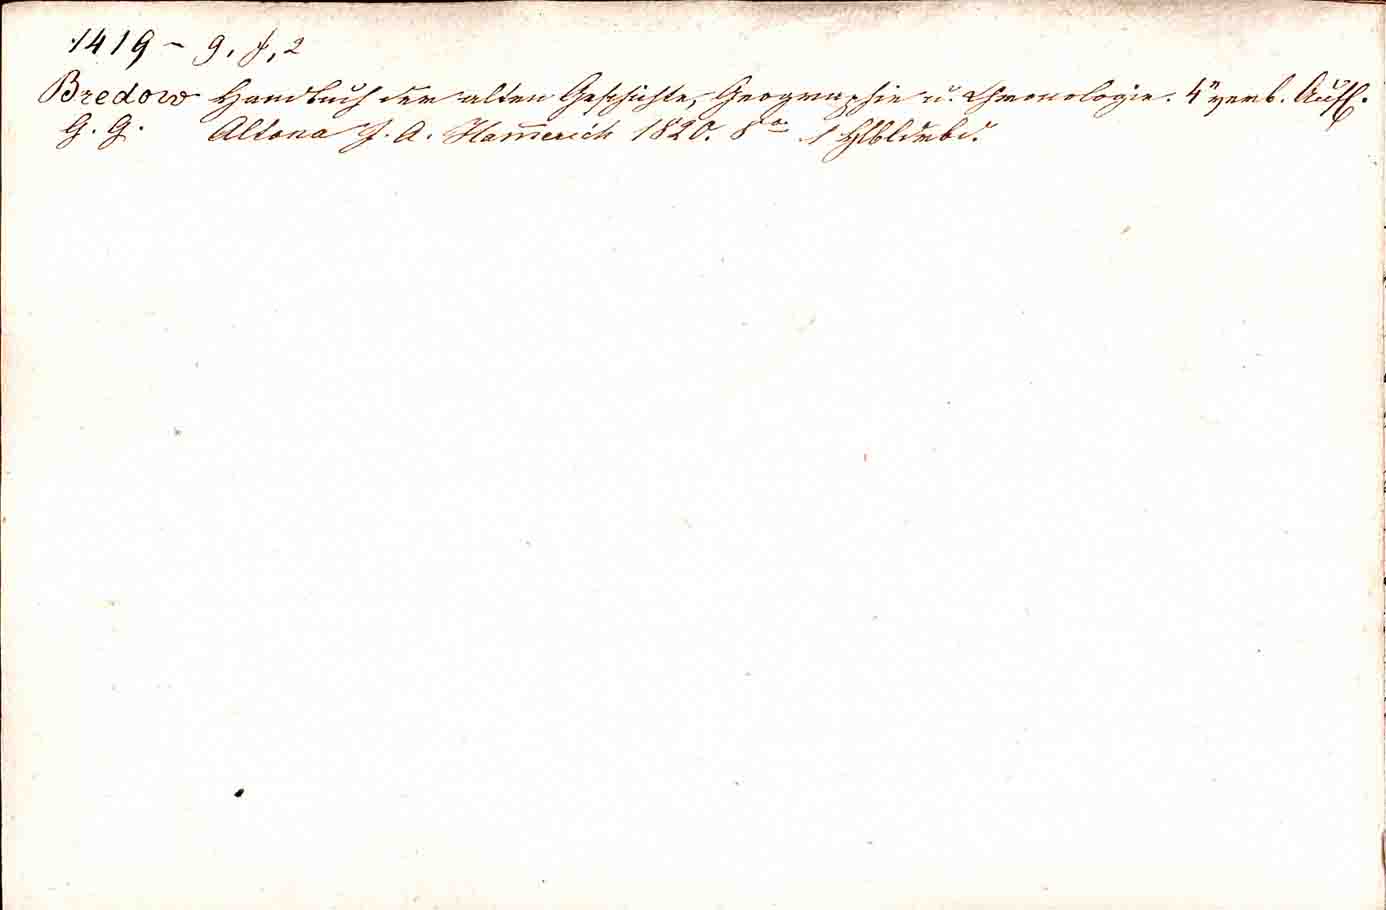 1419 – 9, f, 2
Bredow Handbuch der alten Geschichte, Geographie u. Chronologie. 4" verb. Aufl.
G. G. Altona J. A. Ham̅erich 1820. 8° 1 Hlbldrbd.